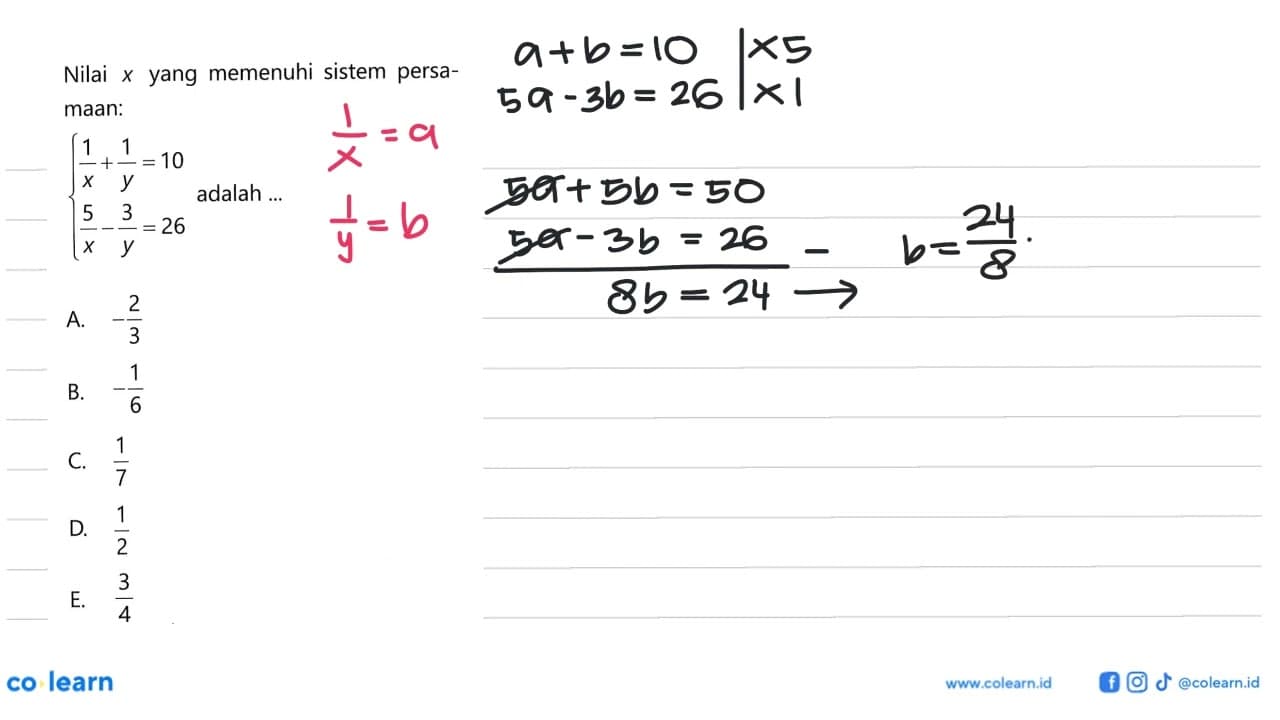 Nilai x yang memenuhi sistem persa-
maan:
1/x + 1/y = 10
5/x - 3/y = 26
adalah ...
A. -2/3
B. -1/6
C. 1/7
D. 1/2
E. 3/4
1/x = a
1/y = b
a + b = 10 | ×5
5a - 3b = 26 | ×1
5a + 5b = 50
5a - 3b = 26 -
8b = 24 →
b = 24/8.
co learn
www.colearn.id
@colearn.id